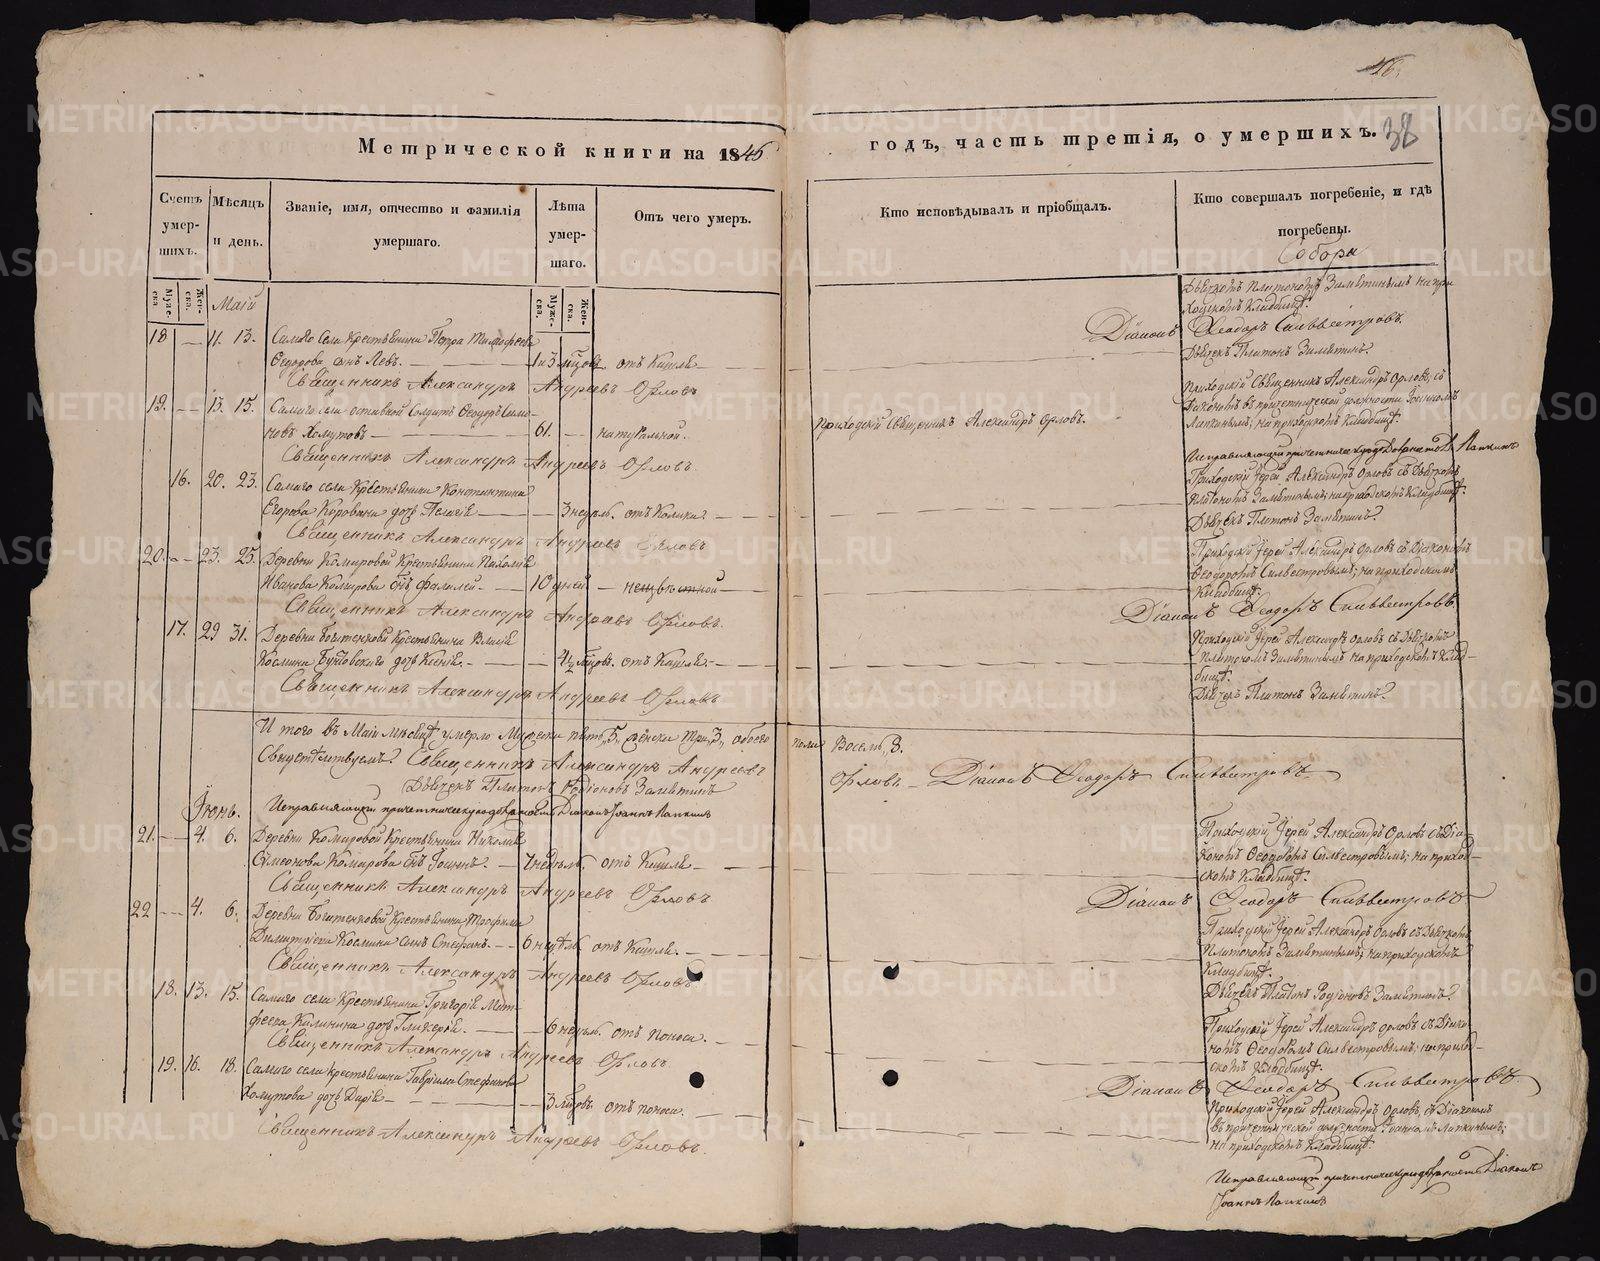 38
Метрической книги на 1846 годъ, часть третія, о умершихъ.
Счетъ умер-шихъ.
Мѣсяцъ и день.
Званіе, имя, отчество и фамилія умершаго.
Лѣта умер-шаго.
Отъ чего умеръ.
Кто исповѣдывалъ и пріобщалъ.
Кто совершалъ погребеніе, и гдѣ погребены.
Муже-ска.
Жен-ска.
Муже-ска.
Жен-ска.
Маій
Дьячкомъ Платономъ Замятинымъ на при-
ходскомъ кладбищѣ.
Діаконъ Ѳеодоръ Сильвестровъ.
Дьячекъ Платонъ Замятинъ.
18 — 11. 13. Самаго села крестьянина Петра Тимофеева
Ѳедорова сынъ Левъ. 1 и 3 мѣсцовъ отъ кашля
Священникъ Александръ Андреевъ Орловъ
19. — 13. 15. Самаго села отставной солдатъ Ѳеодоръ Симо-
новъ Хомутовъ 61. — натуральной.
Приходскій Священникъ Александръ Орловъ.
Приходскій Священникъ Александръ Орловъ, съ
Діакономъ въ причетнической должности Іоанномъ
Лапкинымъ; на приходскомъ кладбищѣ.
Священникъ Александръ Андреевъ Орловъ.
Исправляющій причетническую должность Д. Лапкинъ
16. 20. 23. Самаго села крестьянина Константина
Егорова Коровина дочь Пелагія 3 недѣль. отъ колики.
Приходскій Іерей Александръ Орловъ съ дьячкомъ
Платономъ Замятинымъ; на приходскомъ кладбищѣ.
Дьячекъ Платонъ Замятинъ.
Священникъ Александръ Андреевъ Орловъ
20. — 23. 25. Деревни Комаровой крестьянина Николая
Иванова Комарова сынъ Фалалей. 10 дней — неизвѣстной
Приходскій Іерей Александръ Орловъ съ Діакономъ
Ѳеодоромъ Сильвестровымъ; на приходскомъ
кладбищѣ.
Священникъ Александръ Андреевъ Орловъ.
Діаконъ Ѳеодоръ Сильвестровъ.
17. 29 31. Деревни крестьянина
Космина дочь 4½ мѣсцовъ. отъ кашля.
Приходскій Іерей Александръ Орловъ съ дьячкомъ
Платономъ Замятинымъ на приходскомъ клад-
бищѣ.
Священникъ Александръ Андреевъ Орловъ
Дьячекъ Платонъ Замятинъ.
И того въ Маіи мѣсяцѣ умерло мужеска пять, 5, женска три, 3, обоего пола восемь, 8.
Свидѣтельствуемъ: Священникъ Александръ Андреевъ Орловъ. Діаконъ Ѳеодоръ Сильвестровъ
Дьячекъ Платонъ Родіоновъ Замятинъ
Исправляющій причетническую должность Діаконъ Іоаннъ Лапкинъ
Іюнь.
21. — 4. 6. Деревни Комаровой крестьянина Николая
Симеонова Комарова сынъ Іоаннъ. 7 недѣль. отъ кашля
Приходскій Іерей Александръ Орловъ съ Діа-
кономъ Ѳеодоромъ Сильвестровымъ; на приход-
скомъ кладбищѣ.
Священникъ Александръ Андреевъ Орловъ
Діаконъ Ѳеодоръ Сильвестровъ
22 — 4. 6. Деревни крестьянина Трофима
Димитріева Космина сынъ Стефанъ. 6 недѣль отъ кашля.
Приходскій Іерей Александръ Орловъ съ дьячкомъ
Платономъ Замятинымъ; на приходскомъ
кладбищѣ.
Священникъ Александръ Андреевъ Орловъ
Дьячекъ Платонъ Родіоновъ Замятинъ.
18. 13. 15. Самаго села крестьянина Григорія Мат-
феева Калинина дочь Гликерія. 6 недѣль. отъ поноса.
Приходскій Іерей Александръ Орловъ съ Діако-
номъ Ѳеодоромъ Сильвестровымъ; на приход-
скомъ кладбищѣ.
Священникъ Александръ Андреевъ Орловъ.
Діаконъ Ѳеодоръ Сильвестровъ.
19. 16. 18. Самаго села крестьянина Гавріила Стефанова
Хомутова дочь Дарія 3 мѣсцовъ отъ поноса.
Приходскій Іерей Александръ Орловъ, съ Діакономъ
въ причетнической должности Іоанномъ Лапкинымъ;
на приходскомъ кладбищѣ.
Священникъ Александръ Андреевъ Орловъ.
Исправляющій причетническую должность Діаконъ
Іоаннъ Лапкинъ
METRIKI.GASO-URAL.RU